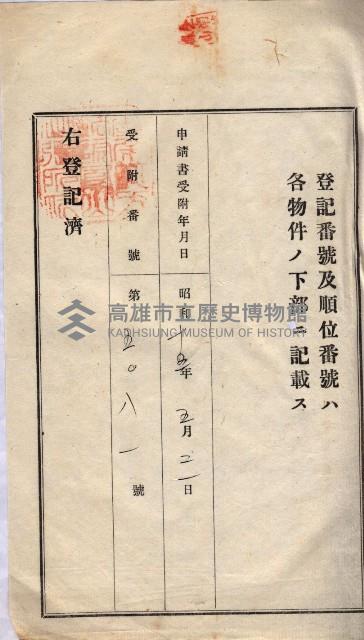 登記番號及順位番號ハ
各物件ノ下部ニ記載ス
申請書受附年月日 昭和十五年五月二日
受附番號 第五〇八一號
右登記濟
高雄市立歷史博物館
KAOHSIUNG MUSEUM OF HISTORY